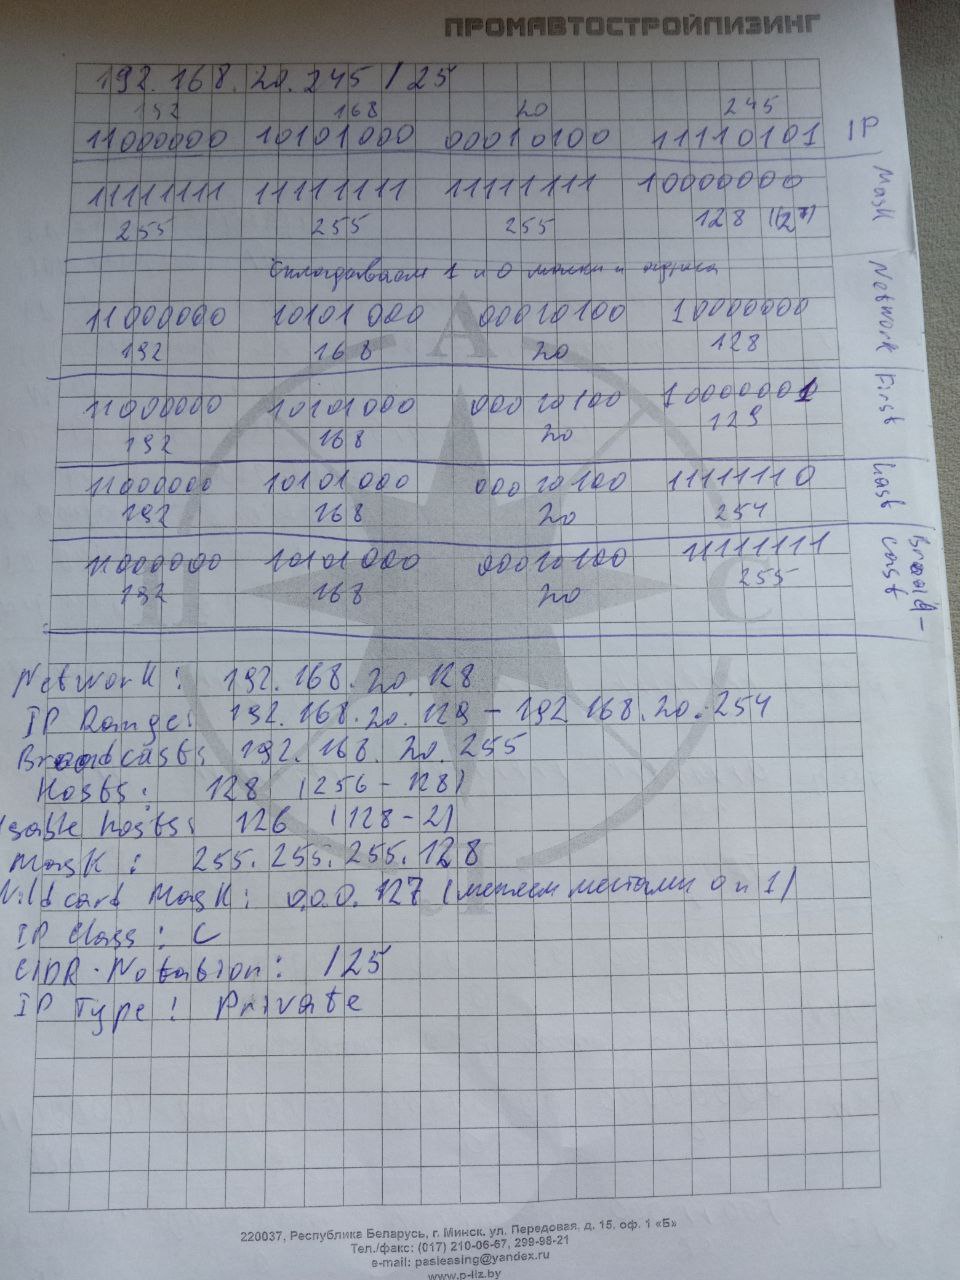 ПРОМАВТОСТРОЙЛИЗИНГ
192.168.20.245 /25
192 168 20 245
11000000 10101000 00010100 11110101 IP
11111111 11111111 11111111 10000000 Mask
255 255 255 128 (2⁷)
Складываем 1 и 0 маски и адреса
11000000 10101000 00010100 10000000 Network
192 168 20 128
11000000 10101000 00010100 10000001 First
192 168 20 129
11000000 10101000 00010100 11111110 Last
192 168 20 254
11000000 10101000 00010100 11111111 Broad-
192 168 20 255 cast
Network: 192.168.20.128
IP Range: 192.168.20.129 - 192.168.20.254
Broadcast: 192.168.20.255
Hosts: 128 (256-128)
Usable hosts: 126 (128-2)
Mask: 255.255.255.128
Wildcard Mask: 0.0.0.127 (меняем местами 0 и 1)
IP Class: C
CIDR-Notation: /25
IP Type: Private
А
С
Л
П
220037, Республика Беларусь, г. Минск, ул. Передовая, д. 15, оф. 1 «Б»
Тел./факс: (017) 210-06-67, 299-98-21
e-mail: pasleasing@yandex.ru
www.p-liz.by